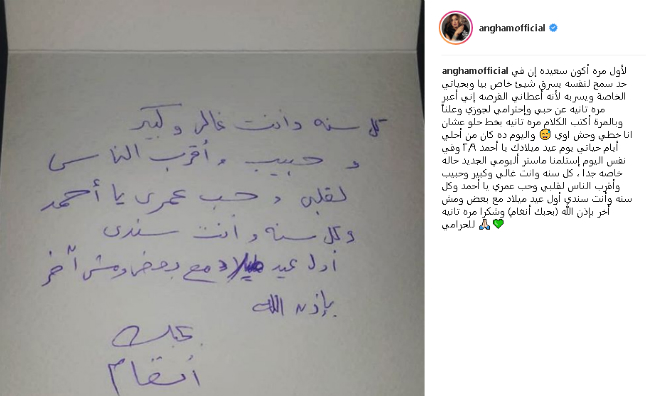 كل سنه وانت غالي وكبير
و حبيب و أقرب الناس
لقلبي و حب عمري يا أحمد
وكل سنه و أنت سندي
أول عيد ميلاد مع بعض ومش آخر
بإذن الله
بحبك
أنغام
anghamofficial
anghamofficial لأول مره أكون سعيده إن في
حد سمح لنفسه يسرق شيئ خاص بيا وبحياتي
الخاصة ويسربه لأنه أعطاني الفرصه إني أعبر
مره تانيه عن حبي وإحترامي لجوزي وعلناً
وبالمرة أكتب الكلام مره تانيه بخط حلو عشان
انا خطي وحش اوي 😅 واليوم ده كان من أحلي
أيام حياتي يوم عيد ميلادك يا أحمد ٢/٩ وفي
نفس اليوم إستلمنا ماستر ألبومي الجديد حاله
خاصه جدا ، كل سنه وانت غالي وكبير وحبيب
وأقرب الناس لقلبي وحب عمري يا أحمد وكل
سنه وأنت سندي أول عيد ميلاد مع بعض ومش
آخر بإذن الله (بحبك أنغام) وشكرا مره تانيه
للحرامي 🙏🏻 💚